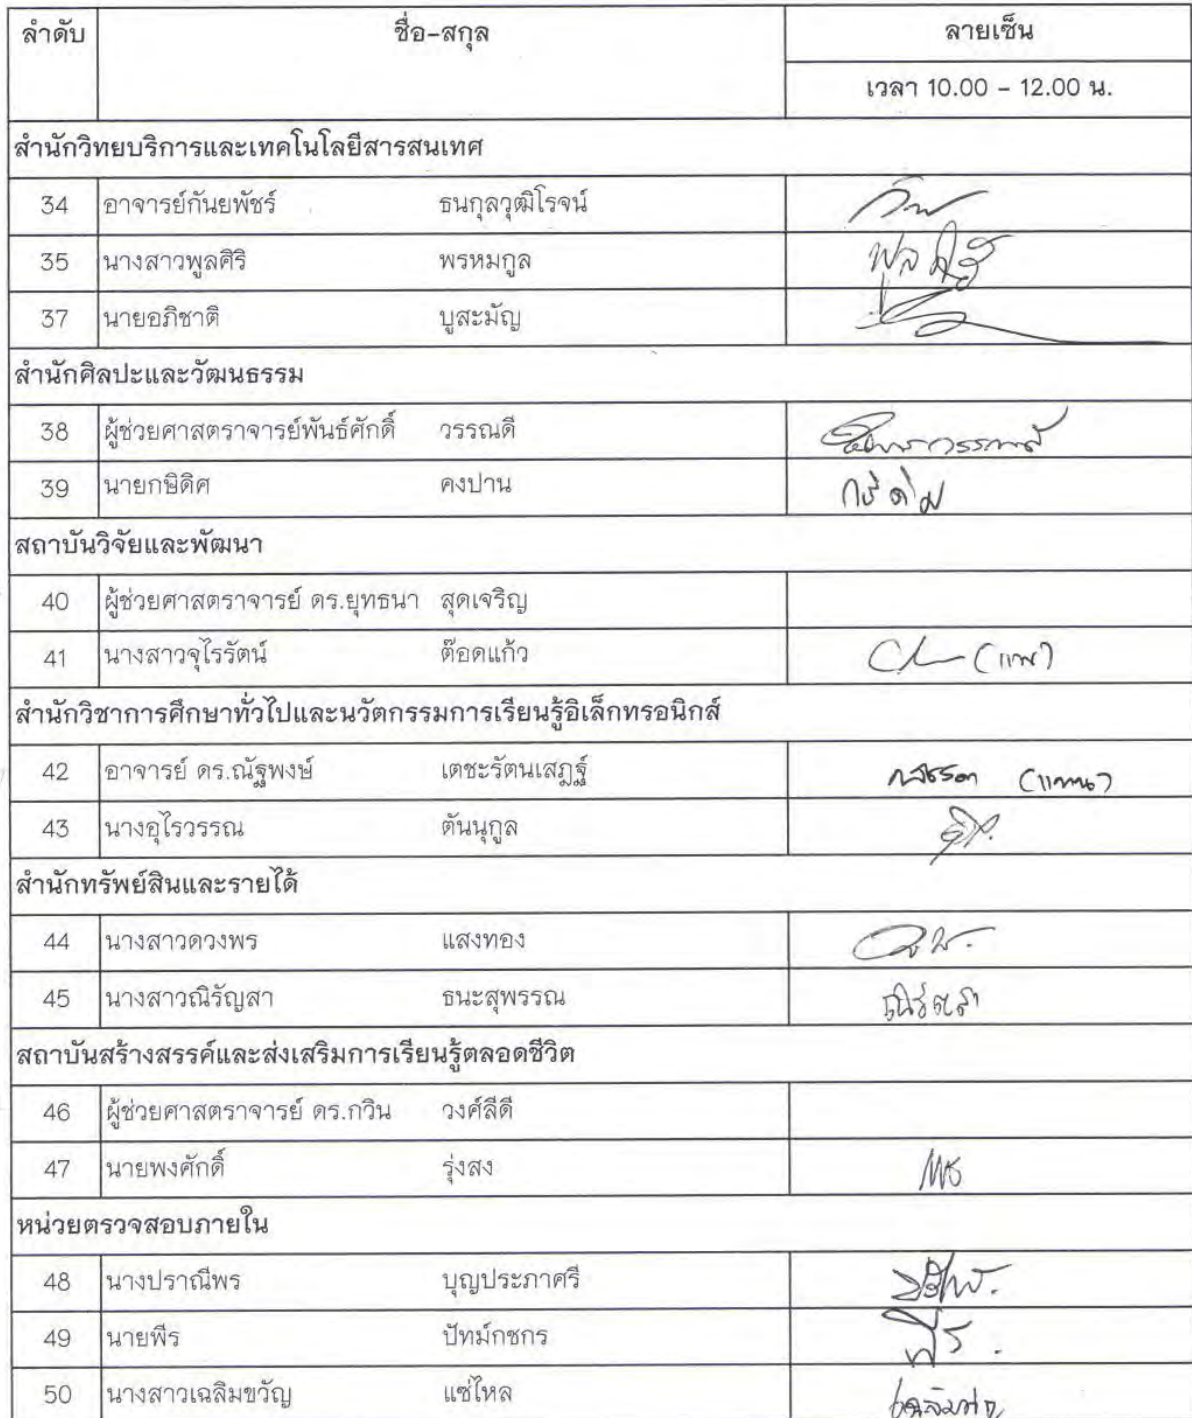 ลำดับ ชื่อ-สกุล ลายเซ็น
เวลา 10.00 - 12.00 น.
สำนักวิทยบริการและเทคโนโลยีสารสนเทศ
34 อาจารย์กันยพัชร์ ธนกุลวุฒิโรจน์
35 นางสาวพูลศิริ พรหมกูล พูลศิริ
37 นายอภิชาติ บูสะมัญ
สำนักศิลปะและวัฒนธรรม
38 ผู้ช่วยศาสตราจารย์พันธ์ศักดิ์ วรรณดี
39 นายกษิดิศ คงปาน
สถาบันวิจัยและพัฒนา
40 ผู้ช่วยศาสตราจารย์ ดร.ยุทธนา สุดเจริญ
41 นางสาวจุไรรัตน์ ต๊อดแก้ว
สำนักวิชาการศึกษาทั่วไปและนวัตกรรมการเรียนรู้อิเล็กทรอนิกส์
42 อาจารย์ ดร.ณัฐพงษ์ เตชะรัตนเสฏฐ์ (แทน)
43 นางอุไรวรรณ ตันนุกูล
สำนักทรัพย์สินและรายได้
44 นางสาวดวงพร แสงทอง
45 นางสาวณิรัญสา ธนะสุพรรณ
สถาบันสร้างสรรค์และส่งเสริมการเรียนรู้ตลอดชีวิต
46 ผู้ช่วยศาสตราจารย์ ดร.กวิน วงศ์ลีดี
47 นายพงศักดิ์ รุ่งสง
หน่วยตรวจสอบภายใน
48 นางปราณีพร บุญประภาศรี
49 นายพีร ปัทม์กชกร พีร.
50 นางสาวเฉลิมขวัญ แซ่ไหล